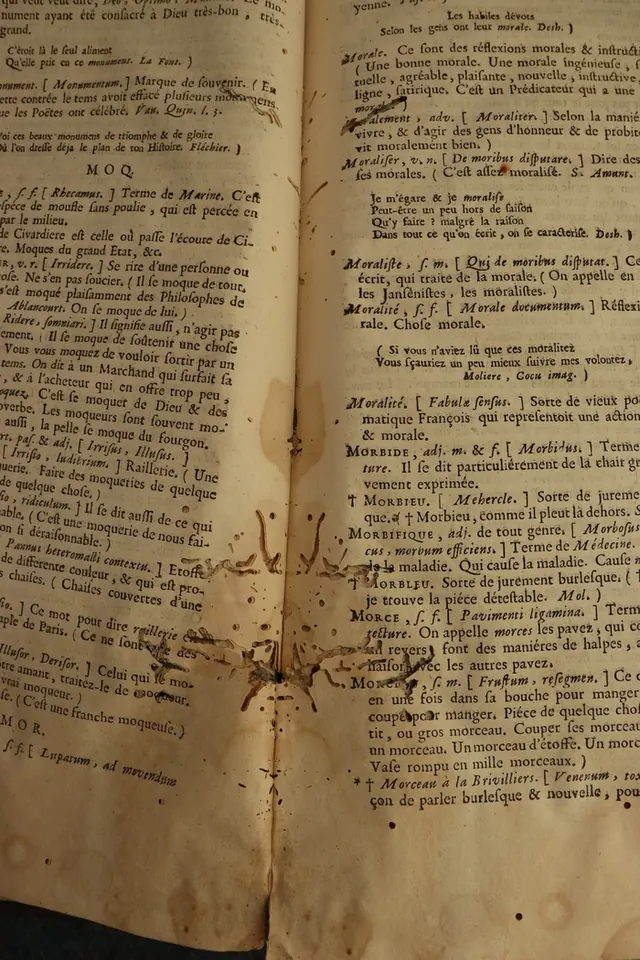 qui veut veut dire, Deo, Optimo, Maximo. Le mo-
nument ayant été consacré à Dieu très-bon, très-
grand.
C'étoit là le seul aliment
Qu'elle prit en ce monument. La Font. )
[ Monumentum. ] Marque de souvenir. ( En
cette contrée le tems avoit effacé plusieurs monumens
que les Poëtes ont célébré. Vau. Quin. l. 3.
ces beaux monumens de triomphe & de gloire
Où l'on dresse déja le plan de ton Histoire. Fléchier. )
MOQ.
s. f. [ Rhecamus. ] Terme de Marine. C'est
espéce de moufle sans poulie, qui est percée en
par le milieu.
de Civardiere est celle où passe l'écoute de Ci-
Moques du grand Etat, &c.
v. r. [ Irridere. ] Se rire d'une personne ou
chose. Ne s'en pas soucier. ( Il se moque de tout.
s'est moqué plaisamment des Philosophes de
Ablancourt. On se moque de lui. )
Ridere, somniari. ] Il signifie aussi, n'agir pas
Il se moque de soûtenir une chose
Vous vous moquez de vouloir sortir par un
tems. On dit à un Marchand qui surfait sa
, & à l'acheteur qui en offre trop peu,
C'est se moquer de Dieu & des
Les moqueurs sont souvent mo-
aussi, la pelle se moque du fourgon.
part. pas. & adj. [ Irrisus, Illusus. ]
[ Irrisio, ludibrium. ] Raillerie. ( Une
Faire des moqueries de quelque
de quelque chose. )
ridiculum. ] Il se dit aussi de ce qui
( C'est une moquerie de nous fai-
si déraisonnable. )
Pannus heteromalli contextu. ] Etoffe
de differente couleur, & qui est pro-
chaises. ( Chaises couvertes d'une
] Ce mot pour dire raillerie
de Paris. ( Ce sont des
Illusor, Derisor. ] Celui qui se mo-
amant, traitez-le de moqueur.
vrai moqueur. )
( C'est une franche moqueuse. )
MOR.
s. f. [ Lupatum, ad movendum
Les habiles dévots
Selon les gens ont leur morale. Desh. )
Morale. Ce sont des réflexions morales & instructi
( Une bonne morale. Une morale ingénieuse, s
tuelle, agréable, plaisante, nouvelle, instructive,
ligne, satirique. C'est un Prédicateur qui a une
morale. )
Moralement, adv. [ Moraliter. ] Selon la manié
vivre, & d'agir des gens d'honneur & de probité
vit moralement bien. )
Moraliser, v. n. [ De moribus disputare. ] Dire des
ses morales. ( C'est assez moralisé. S. Amant.
Je m'égare & je moralise
Peut-être un peu hors de saison
Qu'y faire ? malgré la raison
Dans tout ce qu'on écrit, on se caracterise. Desh. )
Moraliste, s. m. [ Qui de moribus disputat. ] Ce
écrit, qui traite de la morale. ( On appelle en
les Jansénistes, les moralistes. )
Moralité, s. f. [ Morale documentum. ] Réflexi
rale. Chose morale.
( Si vous n'aviez lû que ces moralitez
Vous sçauriez un peu mieux suivre mes volontez,
Moliere, Cocu imag. )
Moralité. [ Fabulæ sensus. ] Sorte de vieux po
matique François qui représentoit une action
& morale.
MORBIDE, adj. m. & f. [ Morbidus. ] Terme
ture. Il se dit particuliérement de la chair gr
vement exprimée.
† MORBIEU. [ Mehercle. ] Sorte de jureme
que. † Morbieu, comme il pleut là dehors. S
MORBIFIQUE, adj. de tout genre. [ Morbosus
cus, morbum efficiens. ] Terme de Médecine.
de la maladie. Qui cause la maladie. Cause m
† MORBLEU. Sorte de jurement burlesque. ( †
je trouve la piéce détestable. Mol. )
MORCE, s. f. [ Pavimenti ligamina. ] Term
tecture. On appelle morces les pavez, qui co
un revers, font des maniéres de halpes, a
liaison avec les autres pavez.
s. m. [ Frustum, resegmen. ] Ce q
en une fois dans sa bouche pour manger
coupé pour manger. Piéce de quelque chos
tit, ou gros morceau. Couper ses morceau
un morceau. Un morceau d'étoffe. Un morc
Vase rompu en mille morceaux. )
* † Morceau à la Brivilliers. [ Venenum, tox
çon de parler burlesque & nouvelle, pou